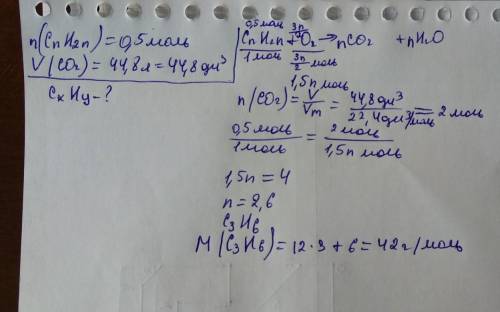 n(CnH2n)=0,5моль
V(CO2)=44,8л=44,8дм³
CxHy-?
0,5моль
CnH2n + 3n/2 O2 → nCO2 + nH2O
1моль 3n/2
1,5n моль
n(CO2)= V/Vm = 44,8дм³/22,4дм³/моль = 2 моль
0,5моль/1моль = 2моль/1,5n моль
1,5n=4
n=2,6
C3H6
M(C3H6)=12·3+6=42г/моль